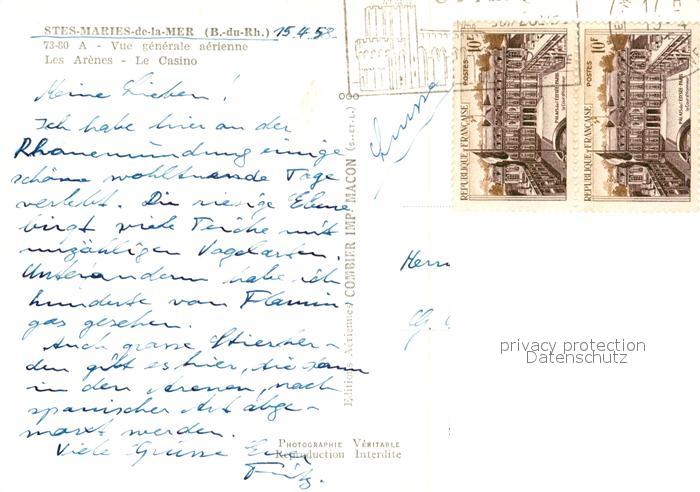 STES-MARIES-de-la-MER (B.-du-Rh.) 15.4.58
73-80 A - Vue générale aérienne
Les Arènes - Le Casino
Meine Lieben!
Ich habe hier an der
Rhonemündung einige
schöne wohltuende Tage
verlebt. Die riesige Ebene
birgt viele Teiche mit
unzähligen Vogelarten.
Unteranderm habe ich
hunderte von Flamin-
gas gesehen.
Auch grosse Stierher-
den gibt es hier, die dann
in den Arenen, nach
spanischer Art abge-
markt werden.
Viele Grüsse Euer
Fritz.
Editions Aériennes COMBIER IMP. MACON (S.-et-L.)
PHOTOGRAPHIE VÉRITABLE
Reproduction Interdite
Suisse
Herrn
POSTES 10F
REPUBLIQUE FRANÇAISE
PALAIS DE L'ELYSEE-PARIS
POSTES 10F
REPUBLIQUE FRANÇAISE
PALAIS DE L'ELYSEE-PARIS
privacy protection
Datenschutz